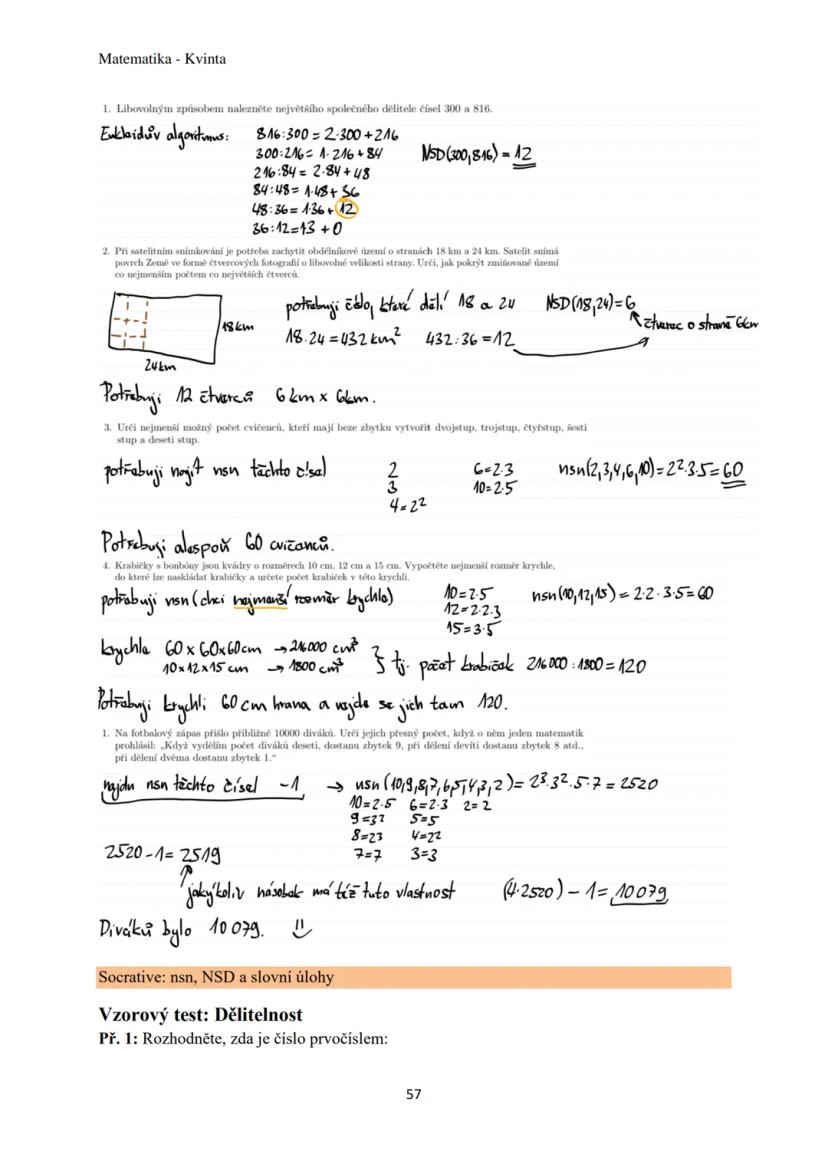 Matematika - Kvinta
1. Libovolným způsobem nalezněte největšího společného dělitele čísel 300 a 816.
Eukleidův algoritmus: 816:300 = 2·300+216
300:216= 1·216+84 NSD(300,816) = 12
216:84 = 2·84+48
84:48= 1·48+36
48:36= 1·36+12
36:12=13 +0
2. Při satelitním snímkování je potřeba zachytit obdélníkové území o stranách 18 km a 24 km. Satelit snímá
povrch Země ve formě čtvercových fotografií o libovolné velikosti strany. Urči, jak pokrýt zmiňované území
co nejmenším počtem co největších čtverců.
potřebuji číslo, které dělí 18 a 24 NSD(18,24)=6
18km čtverec o straně 6km
18·24=432 km² 432:36=12
24km
Potřebuji 12 čtverců 6km x 6km.
3. Urči nejmenší možný počet cvičenců, kteří mají beze zbytku vytvořit dvojstup, trojstup, čtyřstup, šesti
stup a deseti stup.
potřebuji najít nsn těchto čísel 2 6=2·3 nsn(2,3,4,6,10)=2²·3·5=60
3 10=2·5
4=2²
Potřebuji alespoň 60 cvičenců.
4. Krabičky s bonbóny jsou kvádry o rozměrech 10 cm, 12 cm a 15 cm. Vypočtěte nejmenší rozměr krychle,
do které lze naskládat krabičky a určete počet krabiček v této krychli.
potřebuji nsn (chci nejmenší rozměr krychle) 10=2·5 nsn(10,12,15) = 2·2·3·5=60
12=2·2·3
15=3·5
krychle 60x60x60cm → 216000 cm³
10x12x15 cm → 1800 cm³ } tj. počet krabiček 216000:1800=120
Potřebuji krychli 60cm hrana a vejde se jich tam 120.
1. Na fotbalový zápas přišlo přibližně 10000 diváků. Urči jejich přesný počet, když o něm jeden matematik
prohlásil: „Když vydělím počet diváků deseti, dostanu zbytek 9, při dělení devíti dostanu zbytek 8 atd.,
při dělení dvěma dostanu zbytek 1."
najdu nsn těchto čísel -1 → nsn(10,9,8,7,6,5,4,3,2)= 2³·3²·5·7 = 2520
10=2·5 6=2·3 2=2
9=3² 5=5
8=2³ 4=2²
2520-1= 2519 7=7 3=3
jakýkoliv násobek má též tuto vlastnost (4·2520) - 1= 10079
Diváků bylo 10079.
Socrative: nsn, NSD a slovní úlohy
Vzorový test: Dělitelnost
Př. 1: Rozhodněte, zda je číslo prvočíslem:
57